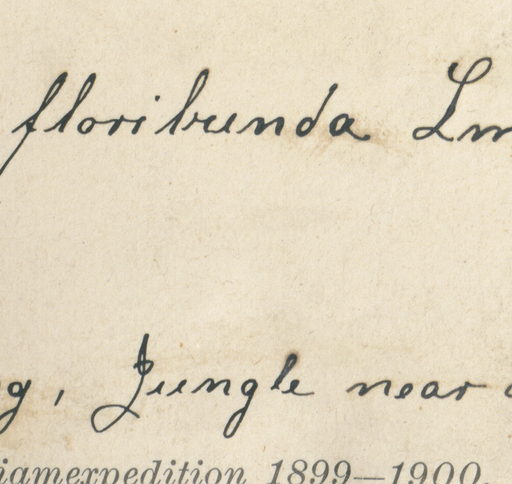 floribunda Lm
g, Jungle near
iamexpedition 1899—1900.